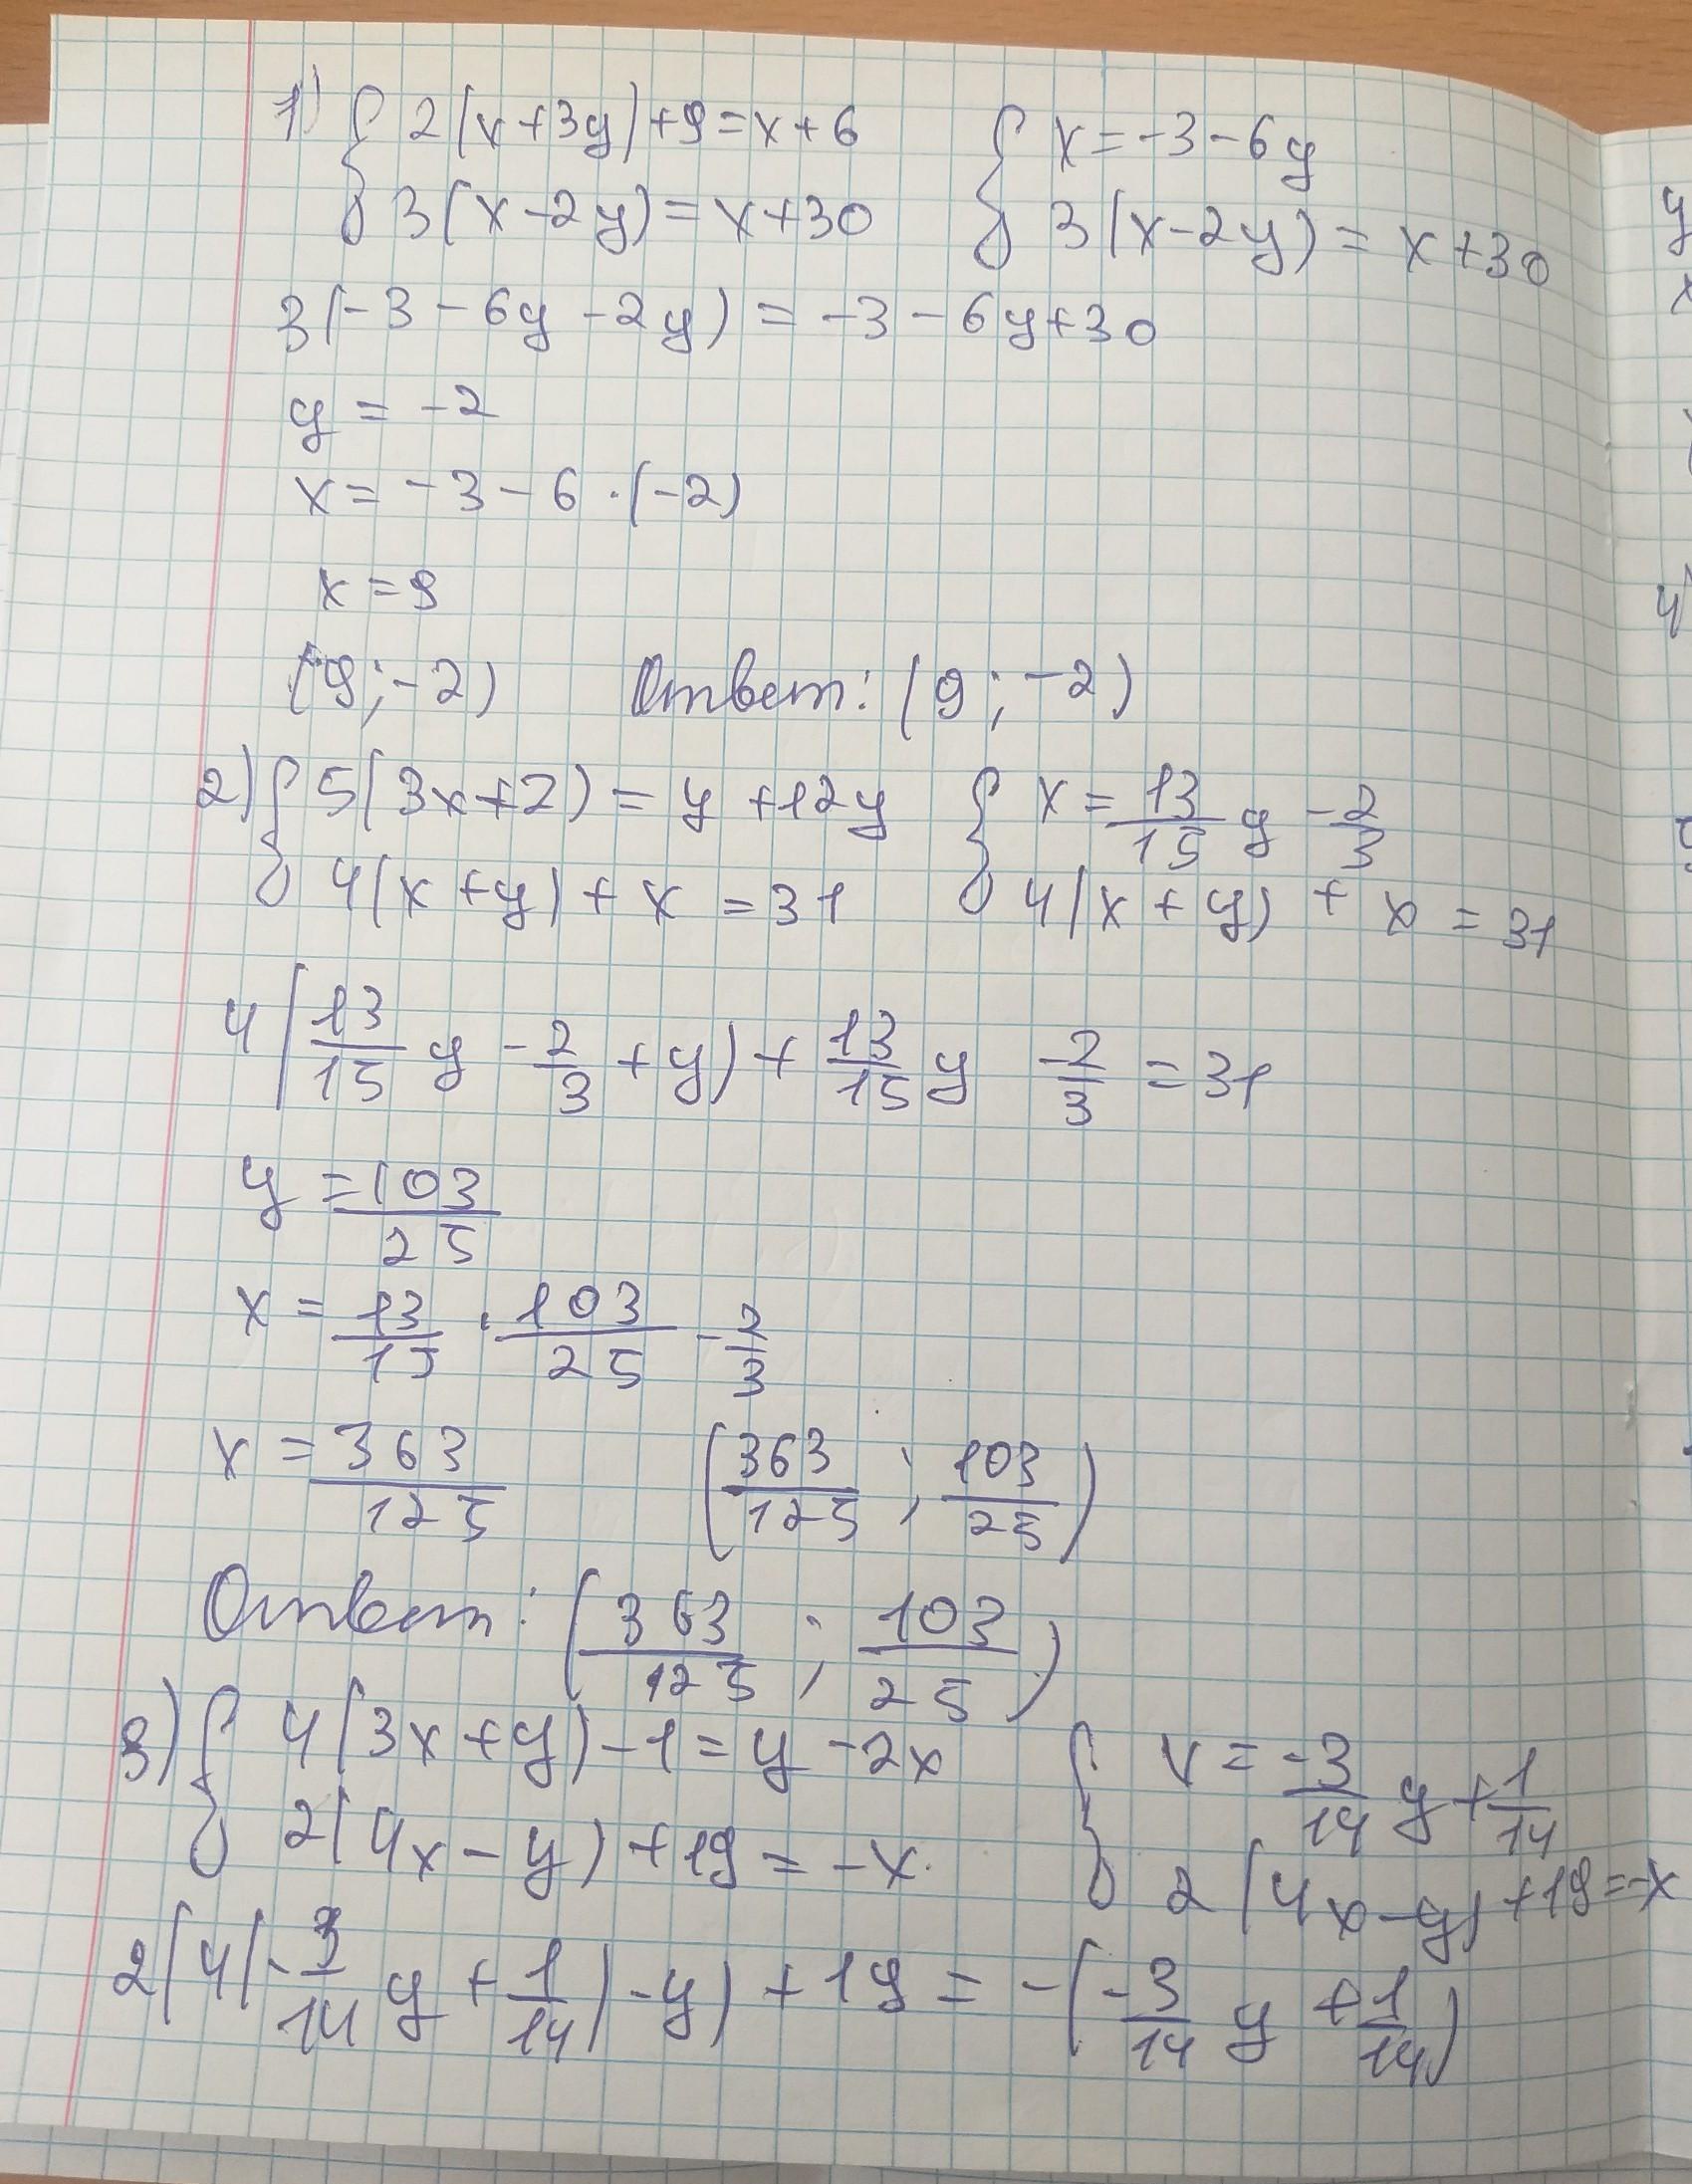 1) { 2(x+3y)+9=x+6 { x=-3-6y
3(x-2y)=x+30 3(x-2y)=x+30
3(-3-6y-2y)=-3-6y+30
y=-2
x=-3-6·(-2)
x=9
(9;-2) Ответ: (9;-2)
2) { 5(3x+2)=y+12y { x=13/15 y -2/3
4(x+y)+x=31 4(x+y)+x=31
4(13/15 y -2/3 +y)+13/15 y -2/3=31
y=103/25
x=13/15·103/25-2/3
x=363/125 (363/125;103/25)
Ответ: (363/125;103/25)
3) { 4(3x+y)-1=y-2x { x=-3/14 y+1/14
2(4x-y)+19=-x. 2(4x-y)+19=-x
2(4(-3/14 y+1/14)-y)+19=-(-3/14 y+1/14)